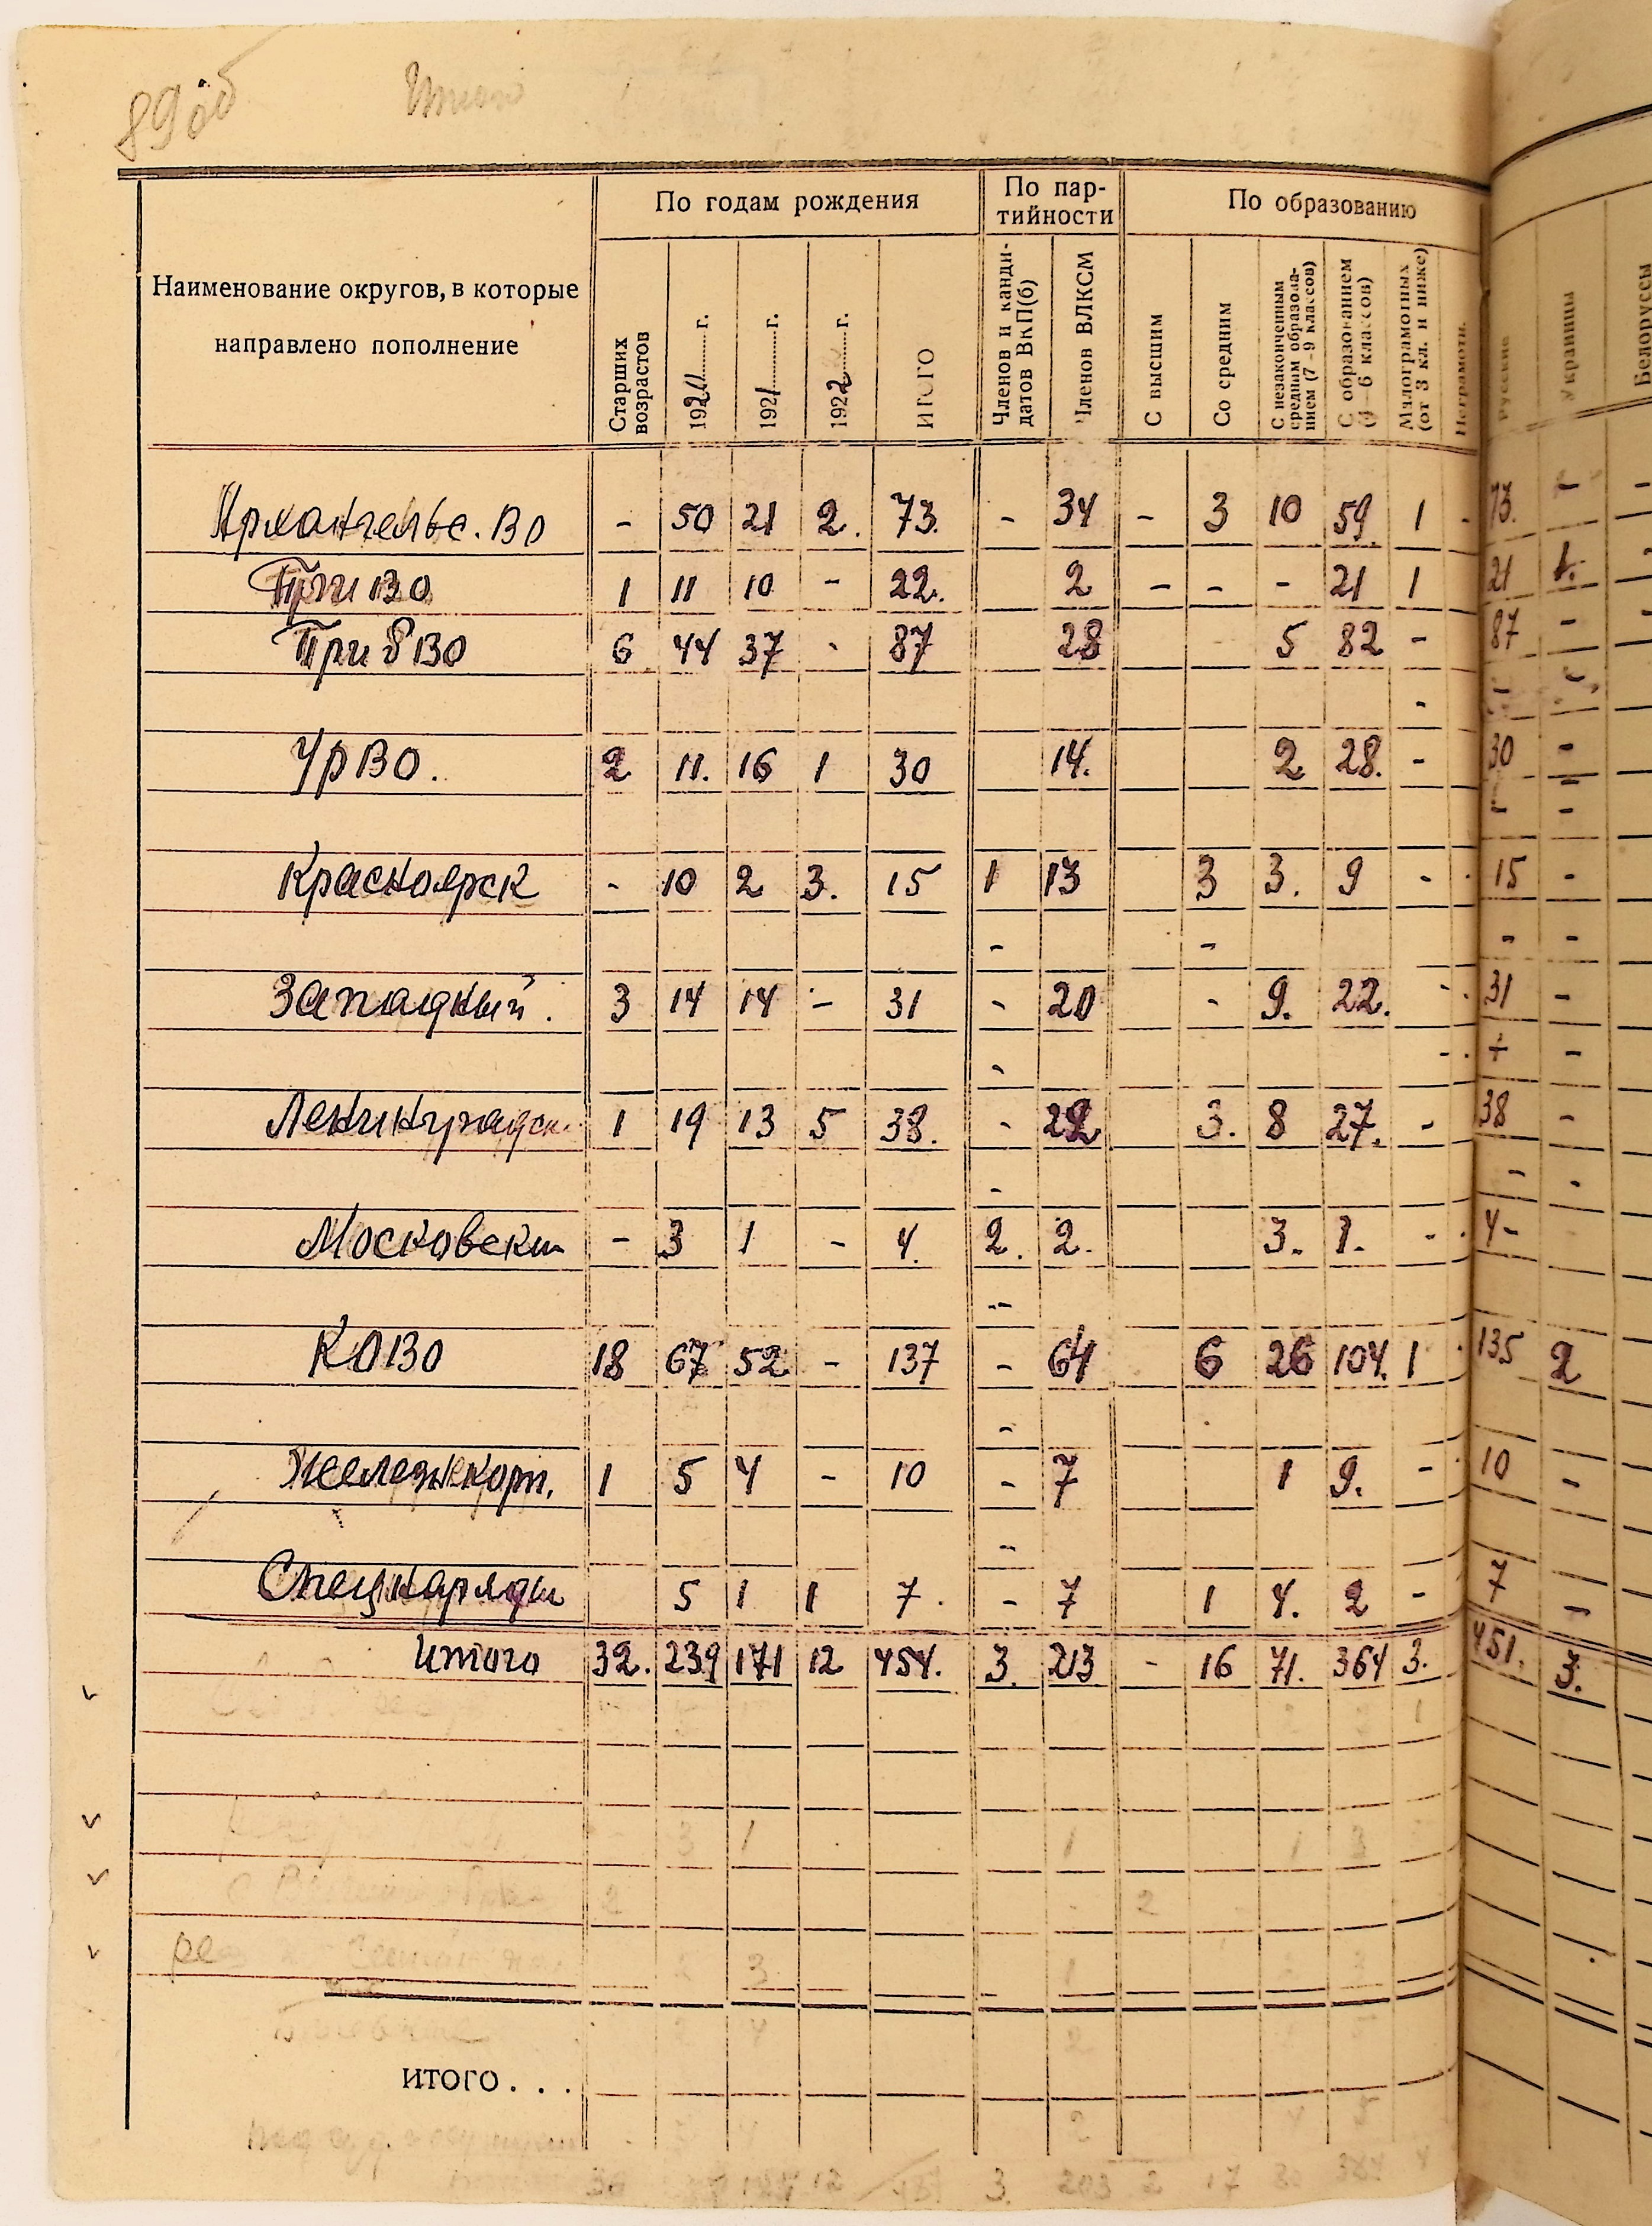 89об
Итого
По годам рождения По пар- По образованию
тийности
Наименование округов, в которые
направлено пополнение
Старших
возрастов
1920 г.
1921 г.
1922 г.
ИТОГО
Членов и канди-
датов ВКП(б)
Членов ВЛКСМ
С высшим
Со средним
С незаконченным
средним образова-
нием (7-9 классов)
С образованием
(4-6 классов)
Малограмотных
(от 3 кл. и ниже)
Неграмотн.
Русские
Украинцы
Белоруссы
Архангельс. ВО - 50 21 2. 73. - 34 - 3 10 59. 1 - 73. -
При ВО 1 11 10 - 22. 2 - - - 21 1 21 1.
Приб ВО 6 44 37 - 87 28 5 82 - 87 -
УрВО. 2 11. 16 1 30 14. 2. 28. - 30 -
Красноярск - 10 2 3. 15 1 13 3 3. 9 - - 15 -
Западный. 3 14 14 - 31 - 20 - 9. 22. - - 31 -
Ленинградск. 1 19 13 5 38. - 22 3. 8 27. - 38 -
Московский - 3 1 - 4. 2. 2. 3. 1. - - 4 -
КОВО 18 67 52 - 137 - 64 6 26 104. 1 - 135 2
Железнкорп. 1 5 4 - 10 - 7 1 9. - 10 -
Спецнаряды 5 1 1 7. - 7 1 4. 2 - 7 -
Итого 32. 239 171 12 454. 3. 213 - 16 71. 364 3. 451. 3.
ИТОГО . . .